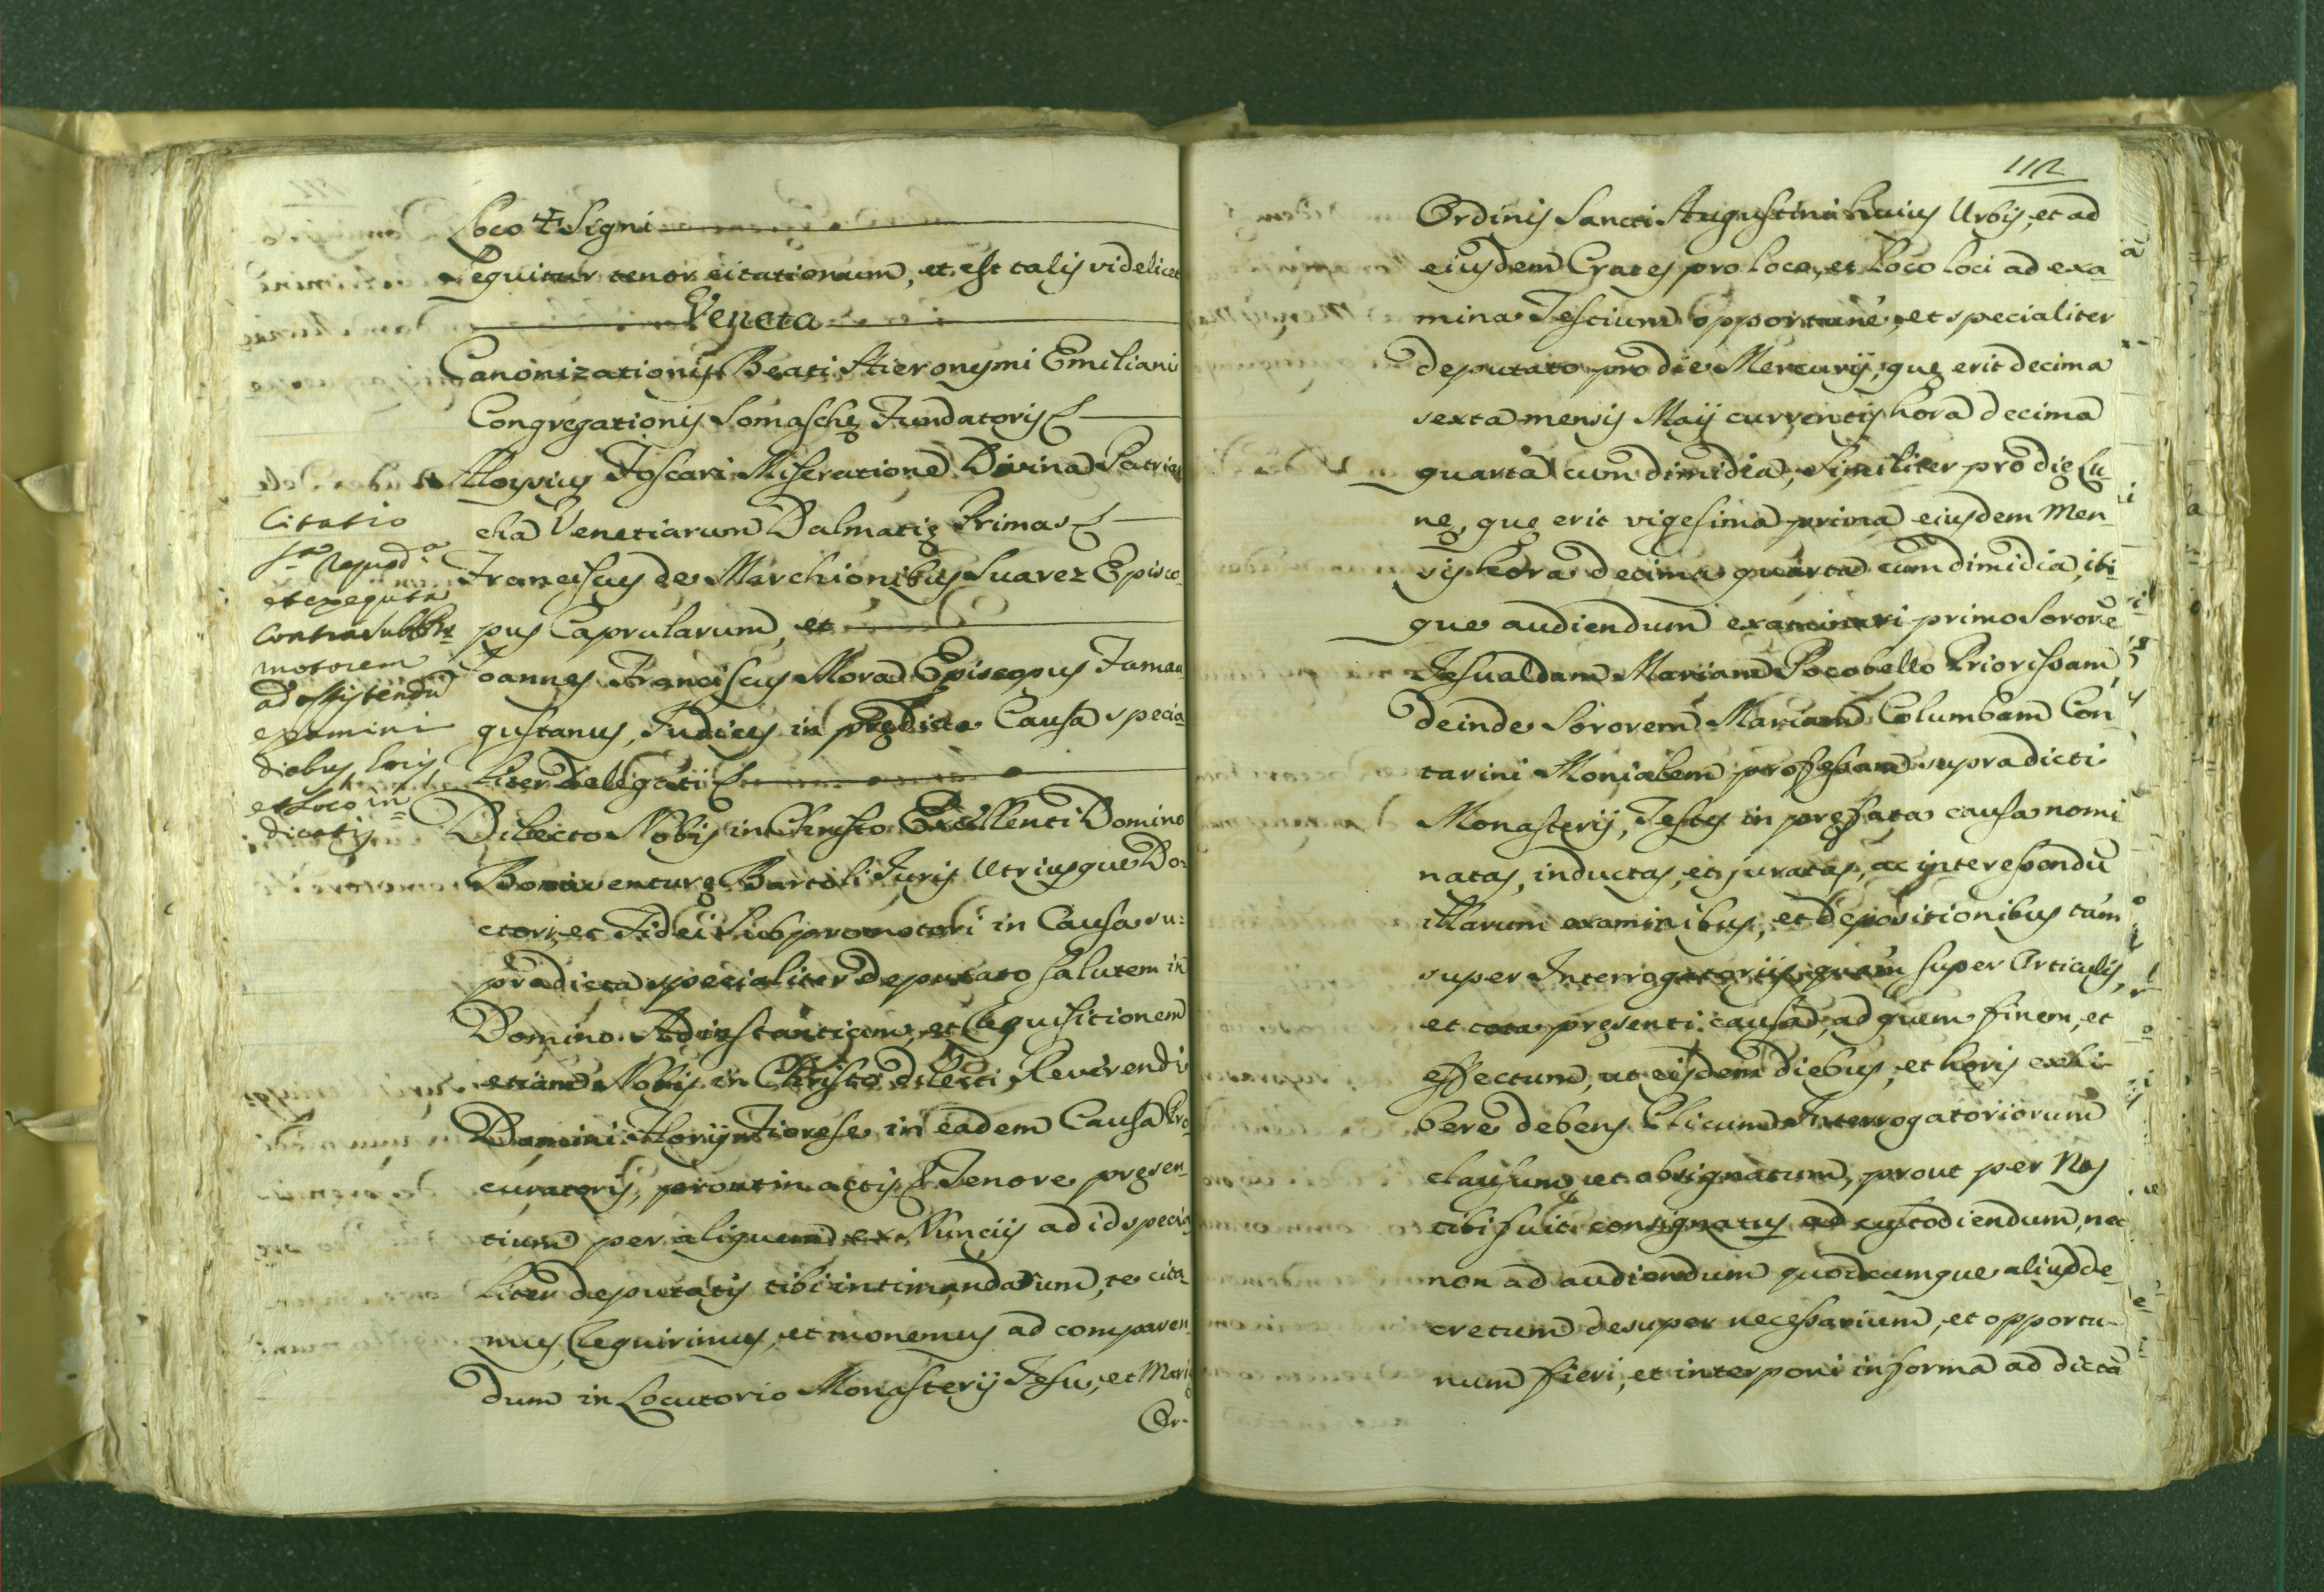 Loco + Signi
Sequitur tenor citationum, et est talis videlicet
Veneta
Canonizationis Beati Hieronymi Emiliani
Congregationis Somaschę Fundatoris
Aloysius Foscari Miseratione Divina Patriar
cha Venetiarum Dalmatię Primas
Franciscus de Marchionibus Suarez Episco-
pus Caprularum, et
Joannes Franciscus Mora Episcopus Famau
gustanus, Judices in prędicta Causa specia
liter delegati
Dilecto Nobis in Christo Excellenti Domino
Bonaventurę Bartoli Juris Utriusque Do=
ctori, et Fidei Subpromotori in Causa su=
pradicta specialiter deputato salutem in
Domino. Ad instantiam, et requisitionem
etiam Nobis in Christo dilecti Reverendi
Domini Florij Fiorese in eadem Causa Pro-
curatoris, prout in actis Tenore pręsen-
tium per aliquem ex Nuncijs ad id specia
liter deputatis tibi intimandarum, te cita-
mus, requirimus, et monemus ad comparen-
dum in Locutorio Monasterij Jesu, et Marię
Or-
Citatio
et exequuta
contra subpro
motorem
ad assistendū
examini
diebus, horis,
et loco in=
dictis
112
Ordinis Sancti Augustini huius Urbis, et ad
eiusdem Crates pro loco, et loco loci ad exa-
mina Testium opportune, et specialiter
deputato pro die Mercurij, quę erit decima
sexta mensis Maij currentis hora decima
quarta cum dimidia, similiter pro die Lu-
nę, quę erit vigesima prima eiusdem Men-
sis hora decima quarta cum dimidia, ibi-
que audiendum examinari primo Sororē
Jesualdam Mariam Pocobello Priorissam,
deinde Sororem Mariam Columbam Con
tarini Monialem professam supradicti
Monasterij, Testes in pręfata causa nomi
natas, inductas, et juratas, ac interessendū
illarum examinibus, et depositionibus tam
super Interrogatorijs, quam super Articulis,
et tota pręsenti causa, ad quem finem, et
effectum, ut eisdem diebus, et horis exhi-
bere debeas Plicum Interrogatoriorum
clausum, et obsignatum, prout per Nos
tibi fuit consignatus ad custodiendum, nec
non ad audiendum quodcumque aliud de-
cretum desuper necessarium, et opportu-
num fieri, et interponi in forma ad dictā